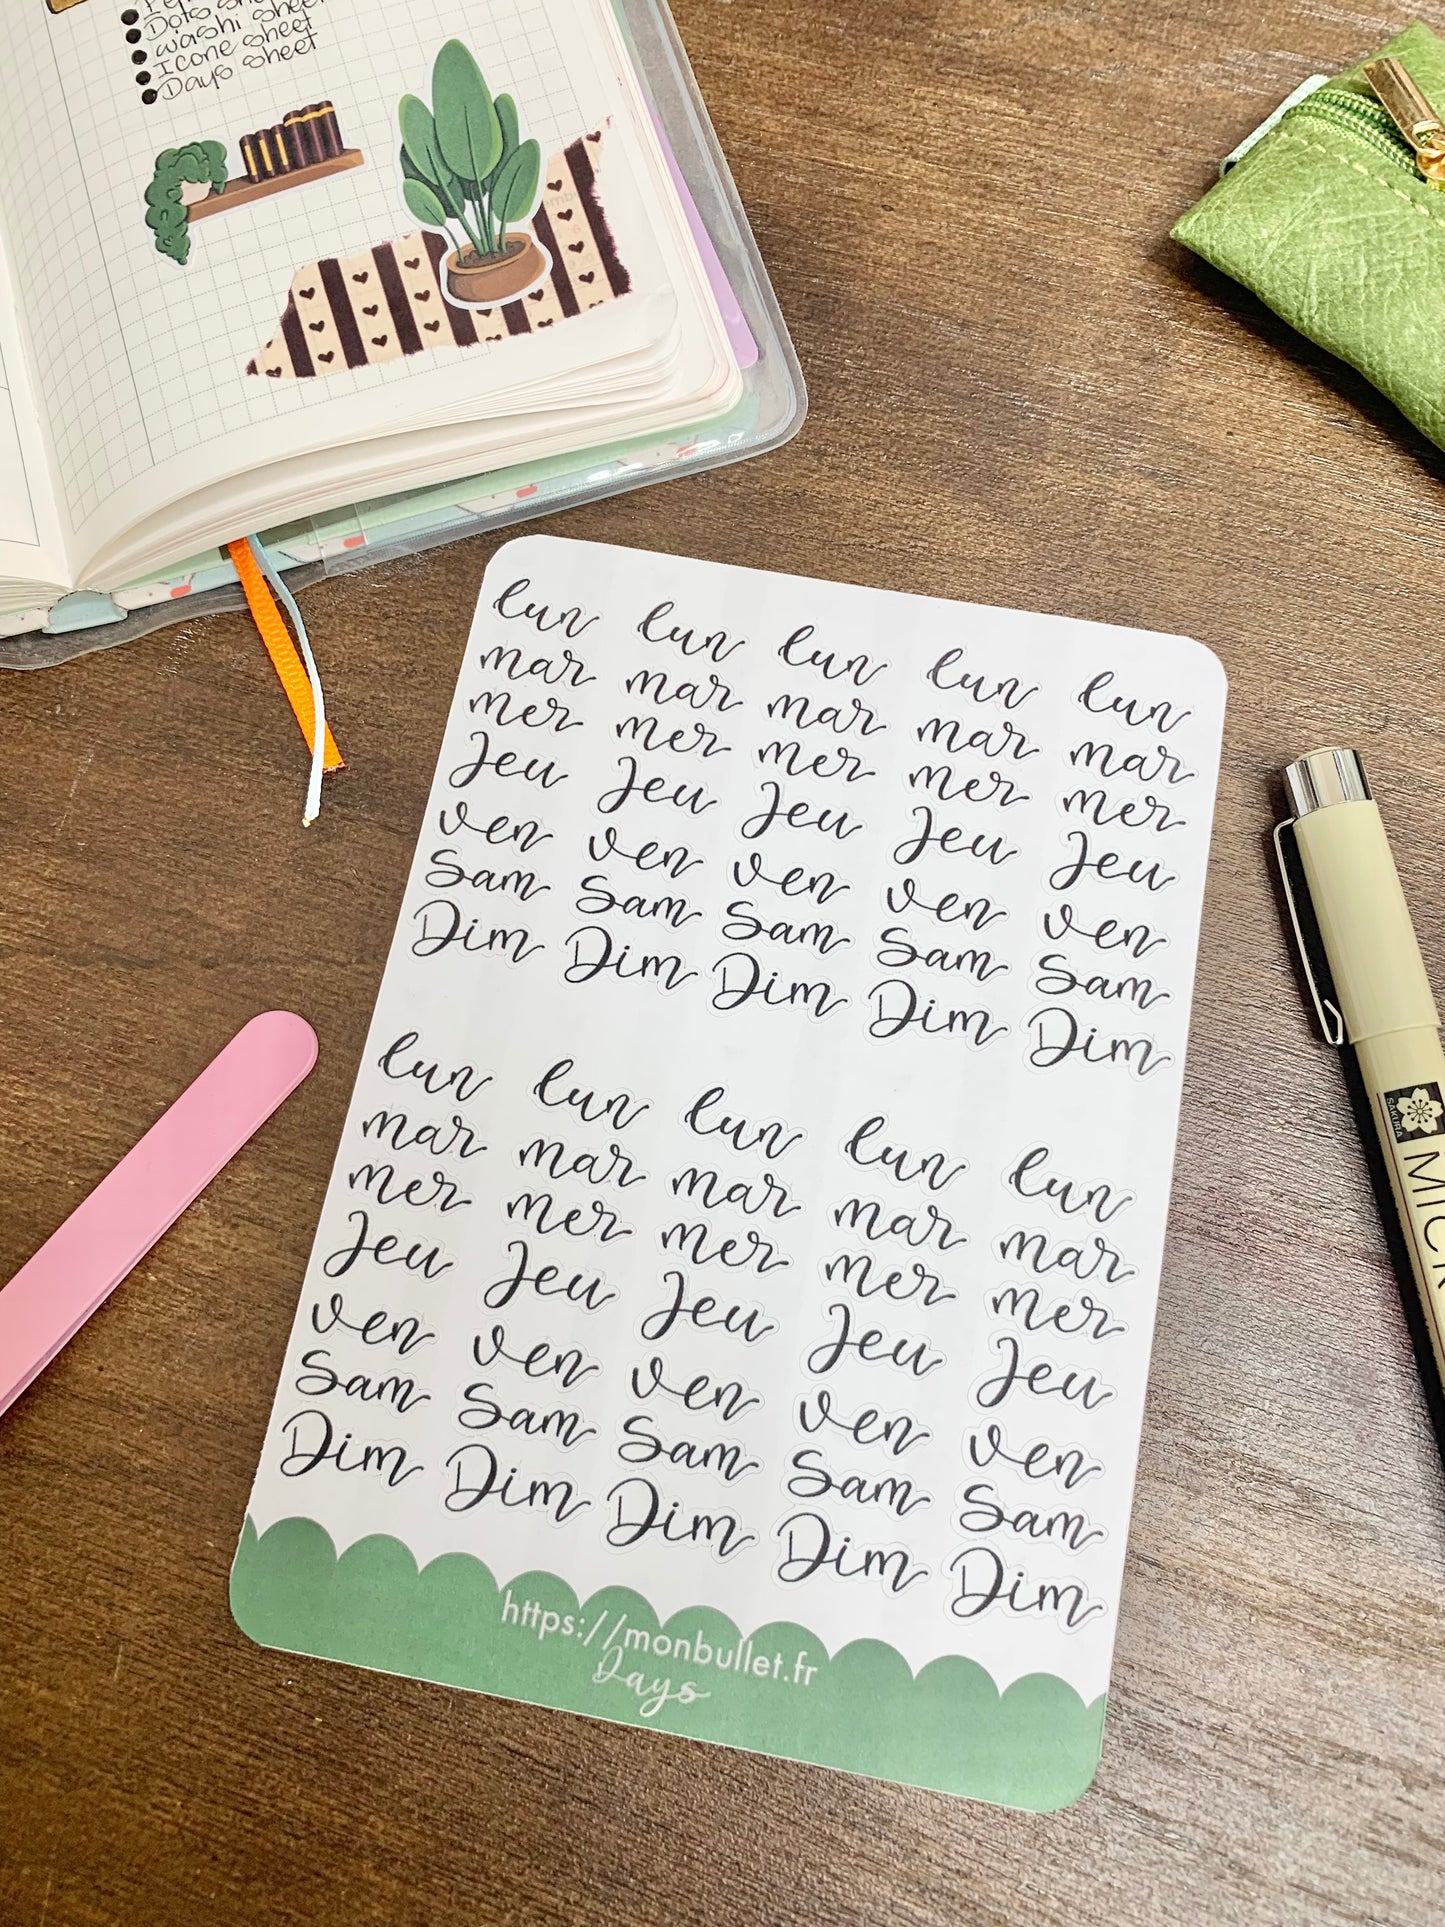 Dots
washi sheet
Icone sheet
Days sheet
lun lun lun lun lun
mar mar mar mar mar
mer mer mer mer mer
Jeu Jeu Jeu Jeu Jeu
ven ven ven ven ven
Sam Sam Sam Sam Sam
Dim Dim Dim Dim Dim
lun lun lun lun lun
mar mar mar mar mar
mer mer mer mer mer
Jeu Jeu Jeu Jeu Jeu
ven ven ven ven ven
Sam Sam Sam Sam Sam
Dim Dim Dim Dim Dim
https://monbullet.fr
Days
SAKURA